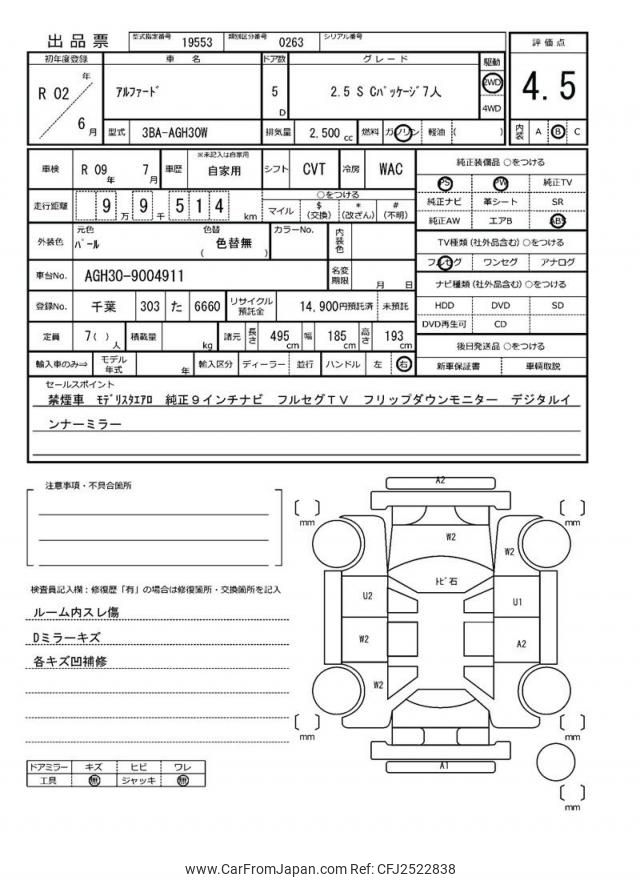 出品票 型式指定番号 19553 類別区分番号 0263 シリアル番号
初年度登録 車名 ドア数 グレード 駆動 評価点
R 02 年 6 月 アルファード 5 D 2.5 S Cパッケージ 7人 2WD 4WD 4.5
型式 3BA-AGH30W 排気量 2,500 cc 燃料 ガソリン 軽油 ( ) 内装 A B C
車検 R 09 年 7 月 車歴 ※未記入は自家用 自家用 シフト CVT 冷房 WAC
純正装備品 ○をつける
PS PW 純正TV
純正ナビ 革シート SR
純正AW エアB ABS
走行距離 9 万 9 千 5 1 4 km
○をつける
マイル $ (交換) * (改ざん) # (不明)
外装色 元色 パール 色替 色替無 ( ) カラーNo. 内装色
TV種類 (社外品含む) ○をつける
フルセグ ワンセグ アナログ
車台No. AGH30-9004911 名変期限 月 日
ナビ種類 (社外品含む) ○をつける
HDD DVD SD
DVD再生可 CD
登録No. 千葉 303 た 6660 リサイクル預託金 14,900円預託済 未預託
定員 7 ( ) 人 積載量 kg 諸元 長さ 495 cm 幅 185 cm 高さ 193 cm
後日発送品 ○をつける
新車保証書 車輌取説
輸入車のみ⇒ モデル年式 年 輸入区分 ディーラー 並行 ハンドル 左 右
セールスポイント
禁煙車 モデリスタエアロ 純正9インチナビ フルセグTV フリップダウンモニター デジタルイ
ンナーミラー
注意事項・不具合箇所
検査員記入欄：修復歴「有」の場合は修復箇所・交換箇所を記入
ルーム内スレ傷
Dミラーキズ
各キズ凹補修
ドアミラー キズ ヒビ ワレ
工具 無 ジャッキ 無
A2
[ ] mm [ ] mm
W2
W2
トビ石
U2 U1
W2 A2
W2
[ ] mm [ ] mm
A1
[ ] mm
www.CarFromJapan.com Ref: CFJ2522838